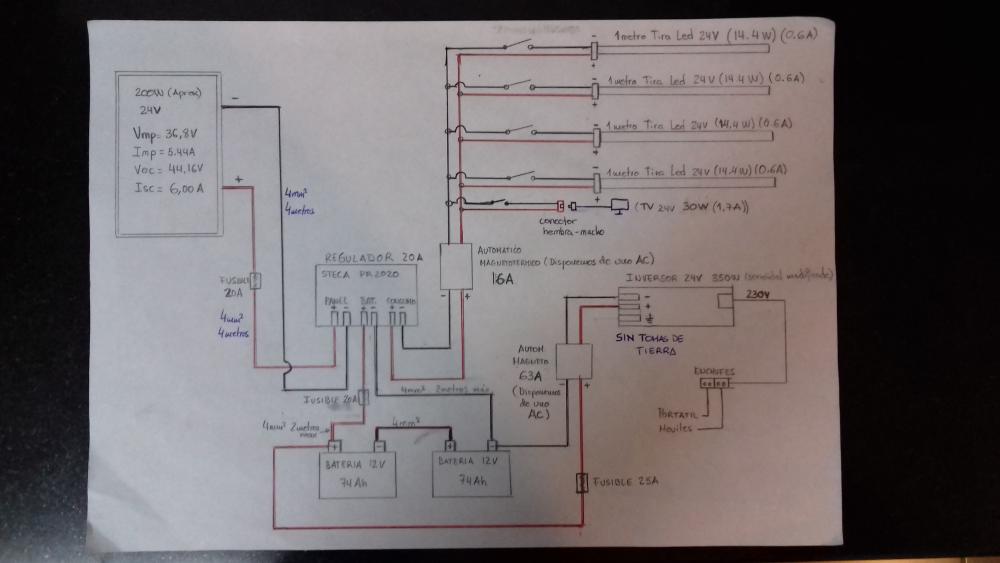 1 metro Tira Led 24V (14.4W) (0.6A)
-
+
1 metro Tira Led 24V (14.4W) (0.6A)
-
+
1 metro Tira Led 24V (14.4W) (0.6A)
-
+
1 metro Tira Led 24V (14.4W) (0.6A)
-
+
(TV 24V 30W (1,7A))
conector
hembra-macho
200W (Aprox)
24V
Vmp= 36,8V
Imp= 5.44A
Voc= 44,16V
Isc= 6,00A
-
+
4mm²
4metros
FUSIBLE
20A
4mm²
4metros
REGULADOR 20A
STECA PR2020
PANEL BAT. CONSUMO
+ - + - + -
AUTOMATICO
MAGNETOTERMICO (Disponemos de uno AC)
16A
- +
INVERSOR 24V 350W (senoidal modificada)
-
+
230V
SIN TOMAS DE
TIERRA
AUTOM.
MAGNETO
63A
(Disponemos
de uno
AC)
- +
ENCHUFES
PORTATIL
Moviles
FUSIBLE 20A
4mm² 2metros máx
4mm² 2metros
max
4mm²
+ -
+ -
BATERIA 12V
74Ah
BATERIA 12V
74Ah
FUSIBLE 25A